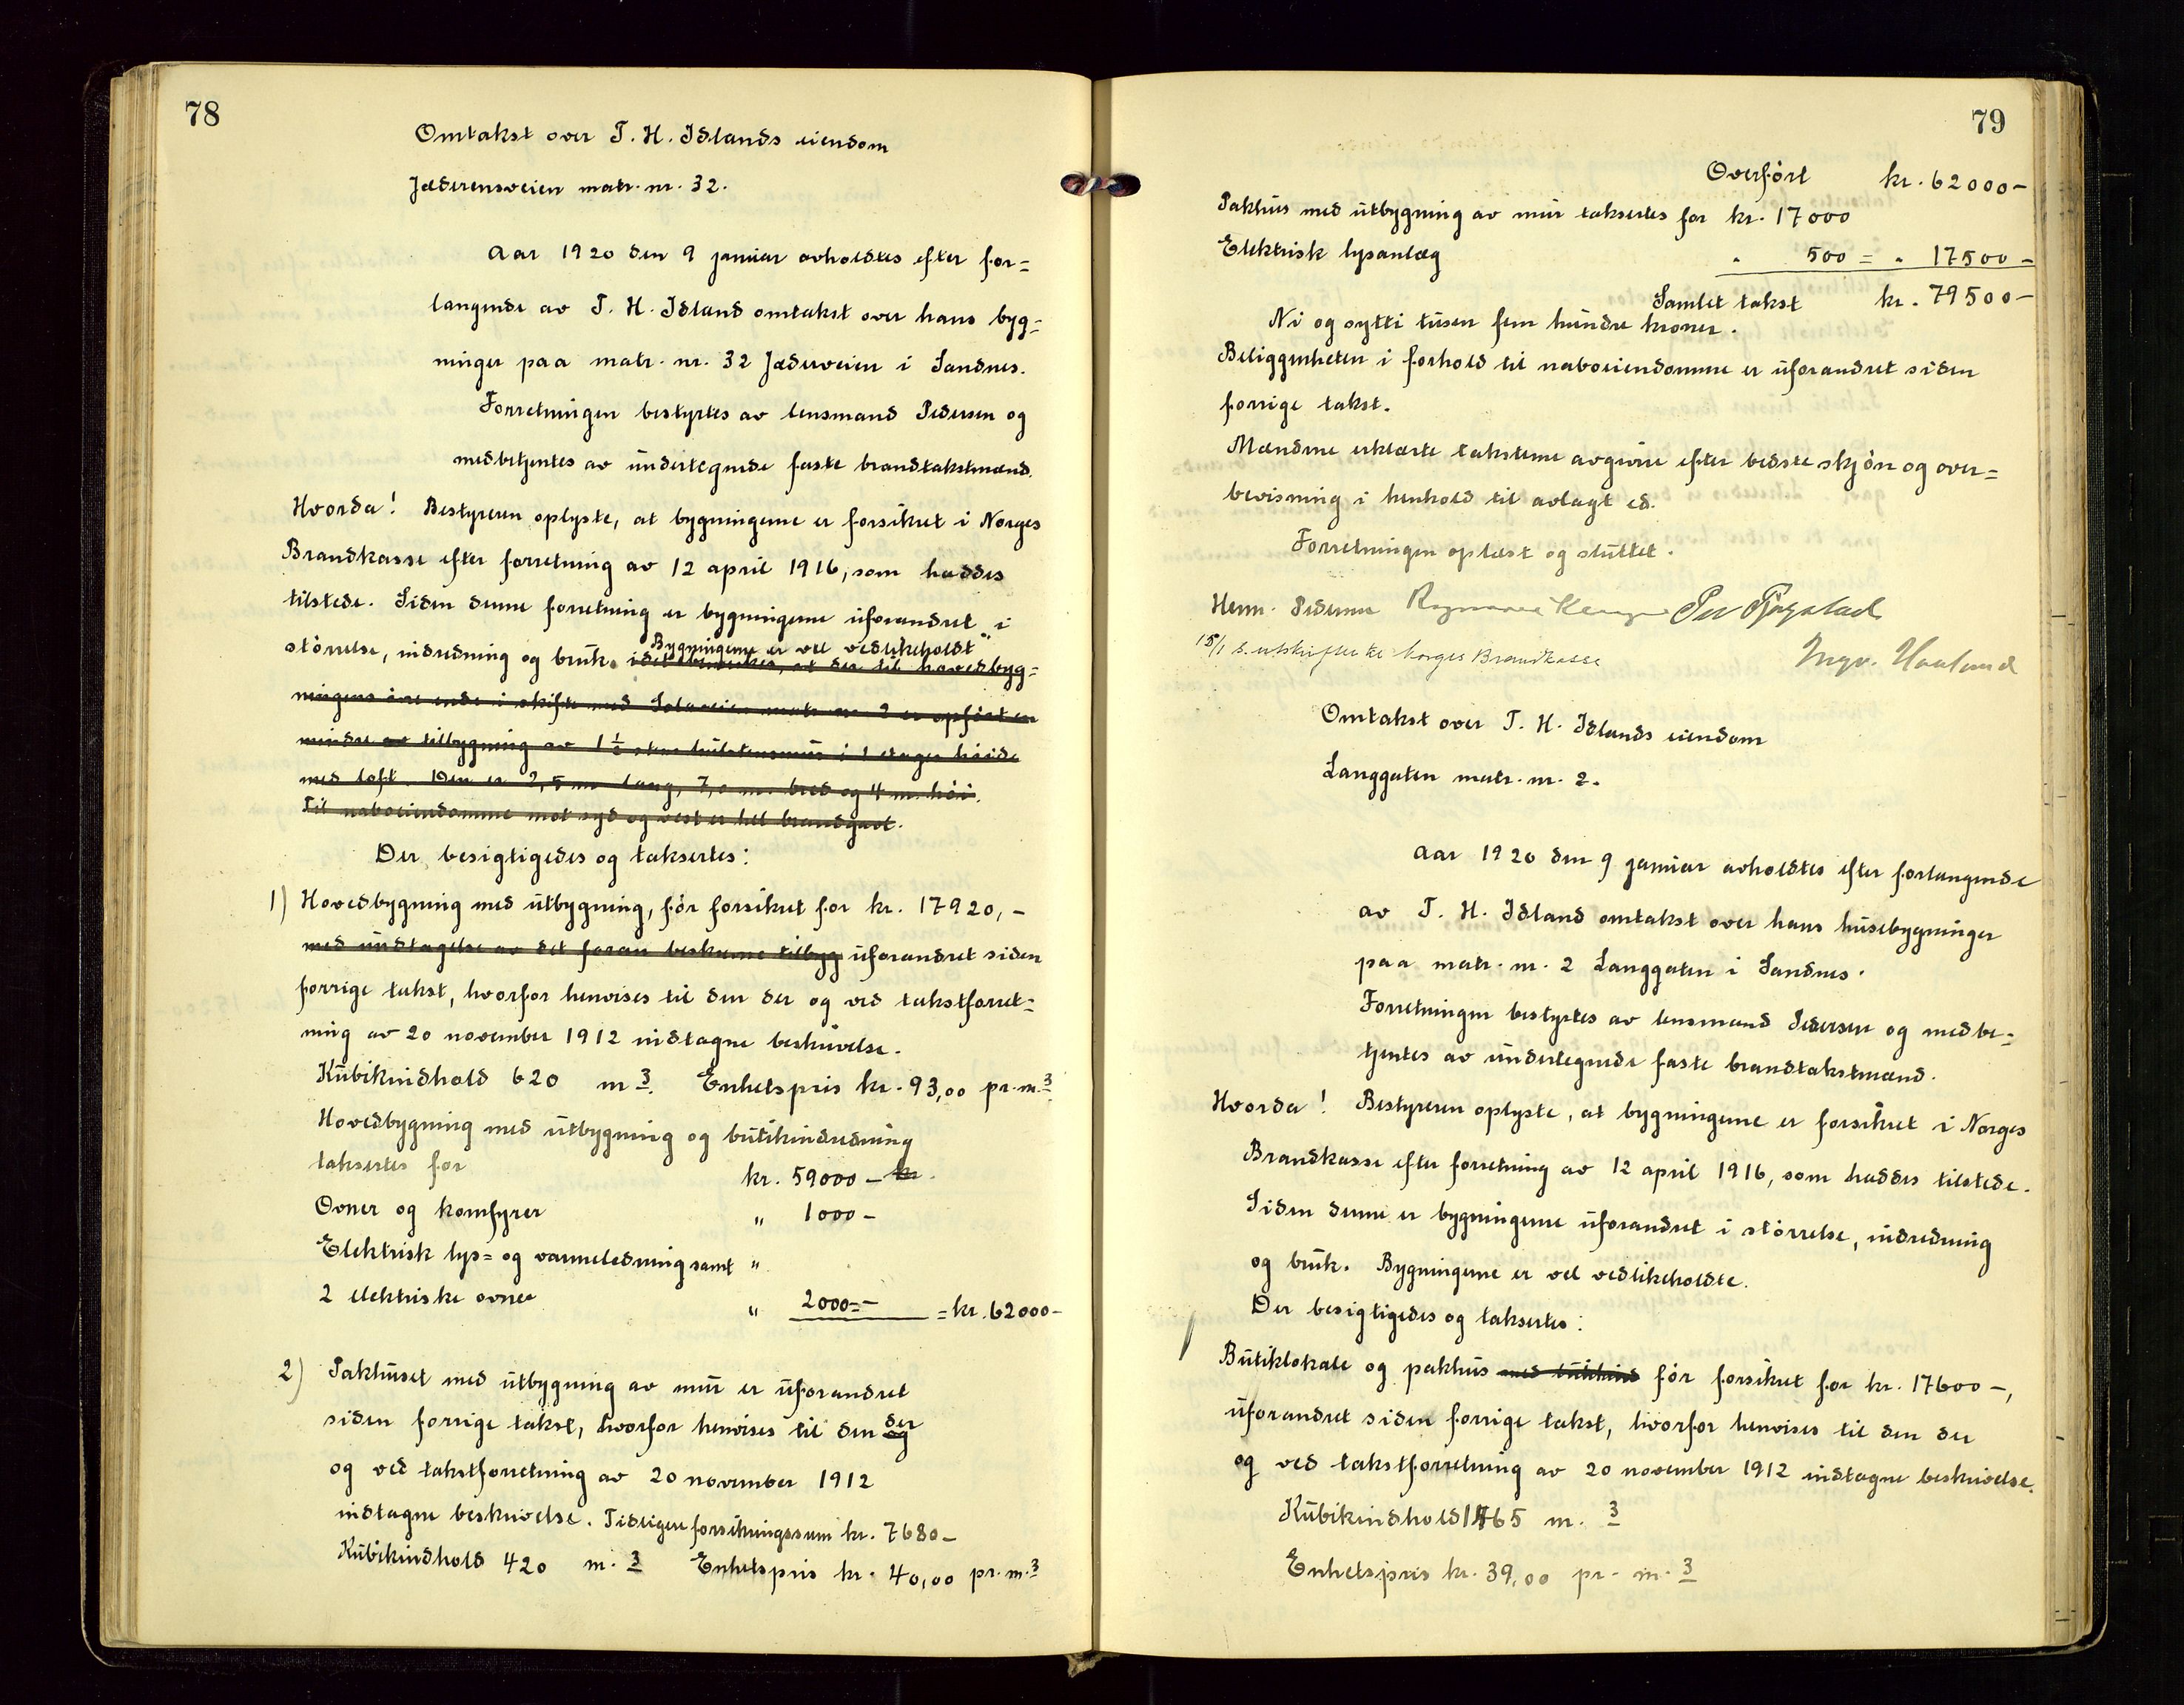 78
Omtakst over T. H. Idlands eiendom
Jæderensveien matr. nr. 32.
Aar 1920 den 9 januar avholdtes efter for=
langende av T. H. Idland omtakst over hans byg=
ninger paa matr. nr. 32 Jæderveien i Sandnes.
Forretningen bestyrtes av lensmand Pedersen og
medbetjentes av undertegnede faste brandtakstmænd.
Hvorda! Bestyreren oplyste, at bygningerne er forsikret i Norges
Brandkasse efter forretning av 12 april 1916, som haddes
tilstede. Siden denne forretning er bygningerne uforandret i
Bygningerne er vel vedlikeholdt"
størrelse, indredning og bruk. idet bemerkes, at der til hovedbyg=
ningens øre ende i skifte med Solaveien matr. nr. 2 er opført en
mindre av tilbygning av 1½ stens hulstensmur i 1 etages høide
med loft. Den er 2,5 m lang, 7,0 m. bred og 4 m. høi.
Til naboeiendomme mot syd og vest er hel brandgavl.
Der besigtigedes og taksertes:
1) Hovedbygning med utbygning, før forsikret for kr. 17920,-
med undtagelse av det foran beskrevne tilbyg uforandret siden
forrige takst, hvorfor henvises til den der og ved takstforret=
ning av 20 november 1912 indtagne beskrivelse.
Kubikindhold 620 m 3. Enhetspris kr. 93,00 pr. m. 3
Hovedbygning med utbygning og butikindredning
taksertes for kr. 59000 - kr.
Ovner og komfyrer " 1000 -
Elektrisk lys= og varmeledning samt "
2 elektriske ovner " 2000=- = kr. 62000-
2) Pakhuset med utbygning av mur er uforandret
siden forrige takst, hvorfor henvises til den og der
og ved takstforretning av 20 november 1912
indtagne beskrivelse. Tidligere forsikringssum kr. 7680-
Kubikindhold 420 m. 3 Enhetspris kr. 40,00 pr. m. 3
79
Overført kr. 62000-
Pakhus med utbygning av mur taksertes for kr. 17000
Elektrisk lysanlæg " 500 = " 17500 -
Samlet takst kr. 79500-
Ni og sytti tusen fem hundre kroner.
Beliggenheten i forhold til naboeiendomme er uforandret siden
forrige takst.
Mændene erklærte taksterne avgivne efter bedste skjøn og over=
bevisning i henhold til avlagt ed.
Forretningen oplæst og sluttet.
Herm. Pedersen Per Fjogstad
15/1 s. utskrifter til Norges Brandkasse Ingv. Haaland
Omtakst over T. H. Idlands eiendom
Langgaten matr. nr. 2.
Aar 1920 den 9 januar avholdtes efter forlangende
av T. H. Idland omtakst over hans husebygninger
paa matr. nr. 2 Langgaten i Sandnes.
Forretningen bestyrtes av lensmand Pedersen og medbe=
tjentes av undertegnede faste brandtakstmænd.
Hvorda! Bestyreren oplyste, at bygningerne er forsikret i Norges
Brandkasse efter forretning av 12 april 1916, som haddes tilstede.
Siden denne er bygningerne uforandret i størrelse, indredning
og bruk. Bygningerne er vel vedlikeholdte.
Der besigtigedes og taksertes:
Butiklokale og pakhus med butikind før forsikret for kr. 17600 -,
uforandret siden forrige takst, hvorfor henvises til den der
og ved takstforretning av 20 november 1912 indtagne beskrivelse.
Kubikindhold 1465 m. 3
Enhetspris kr. 39,00 pr. m. 3